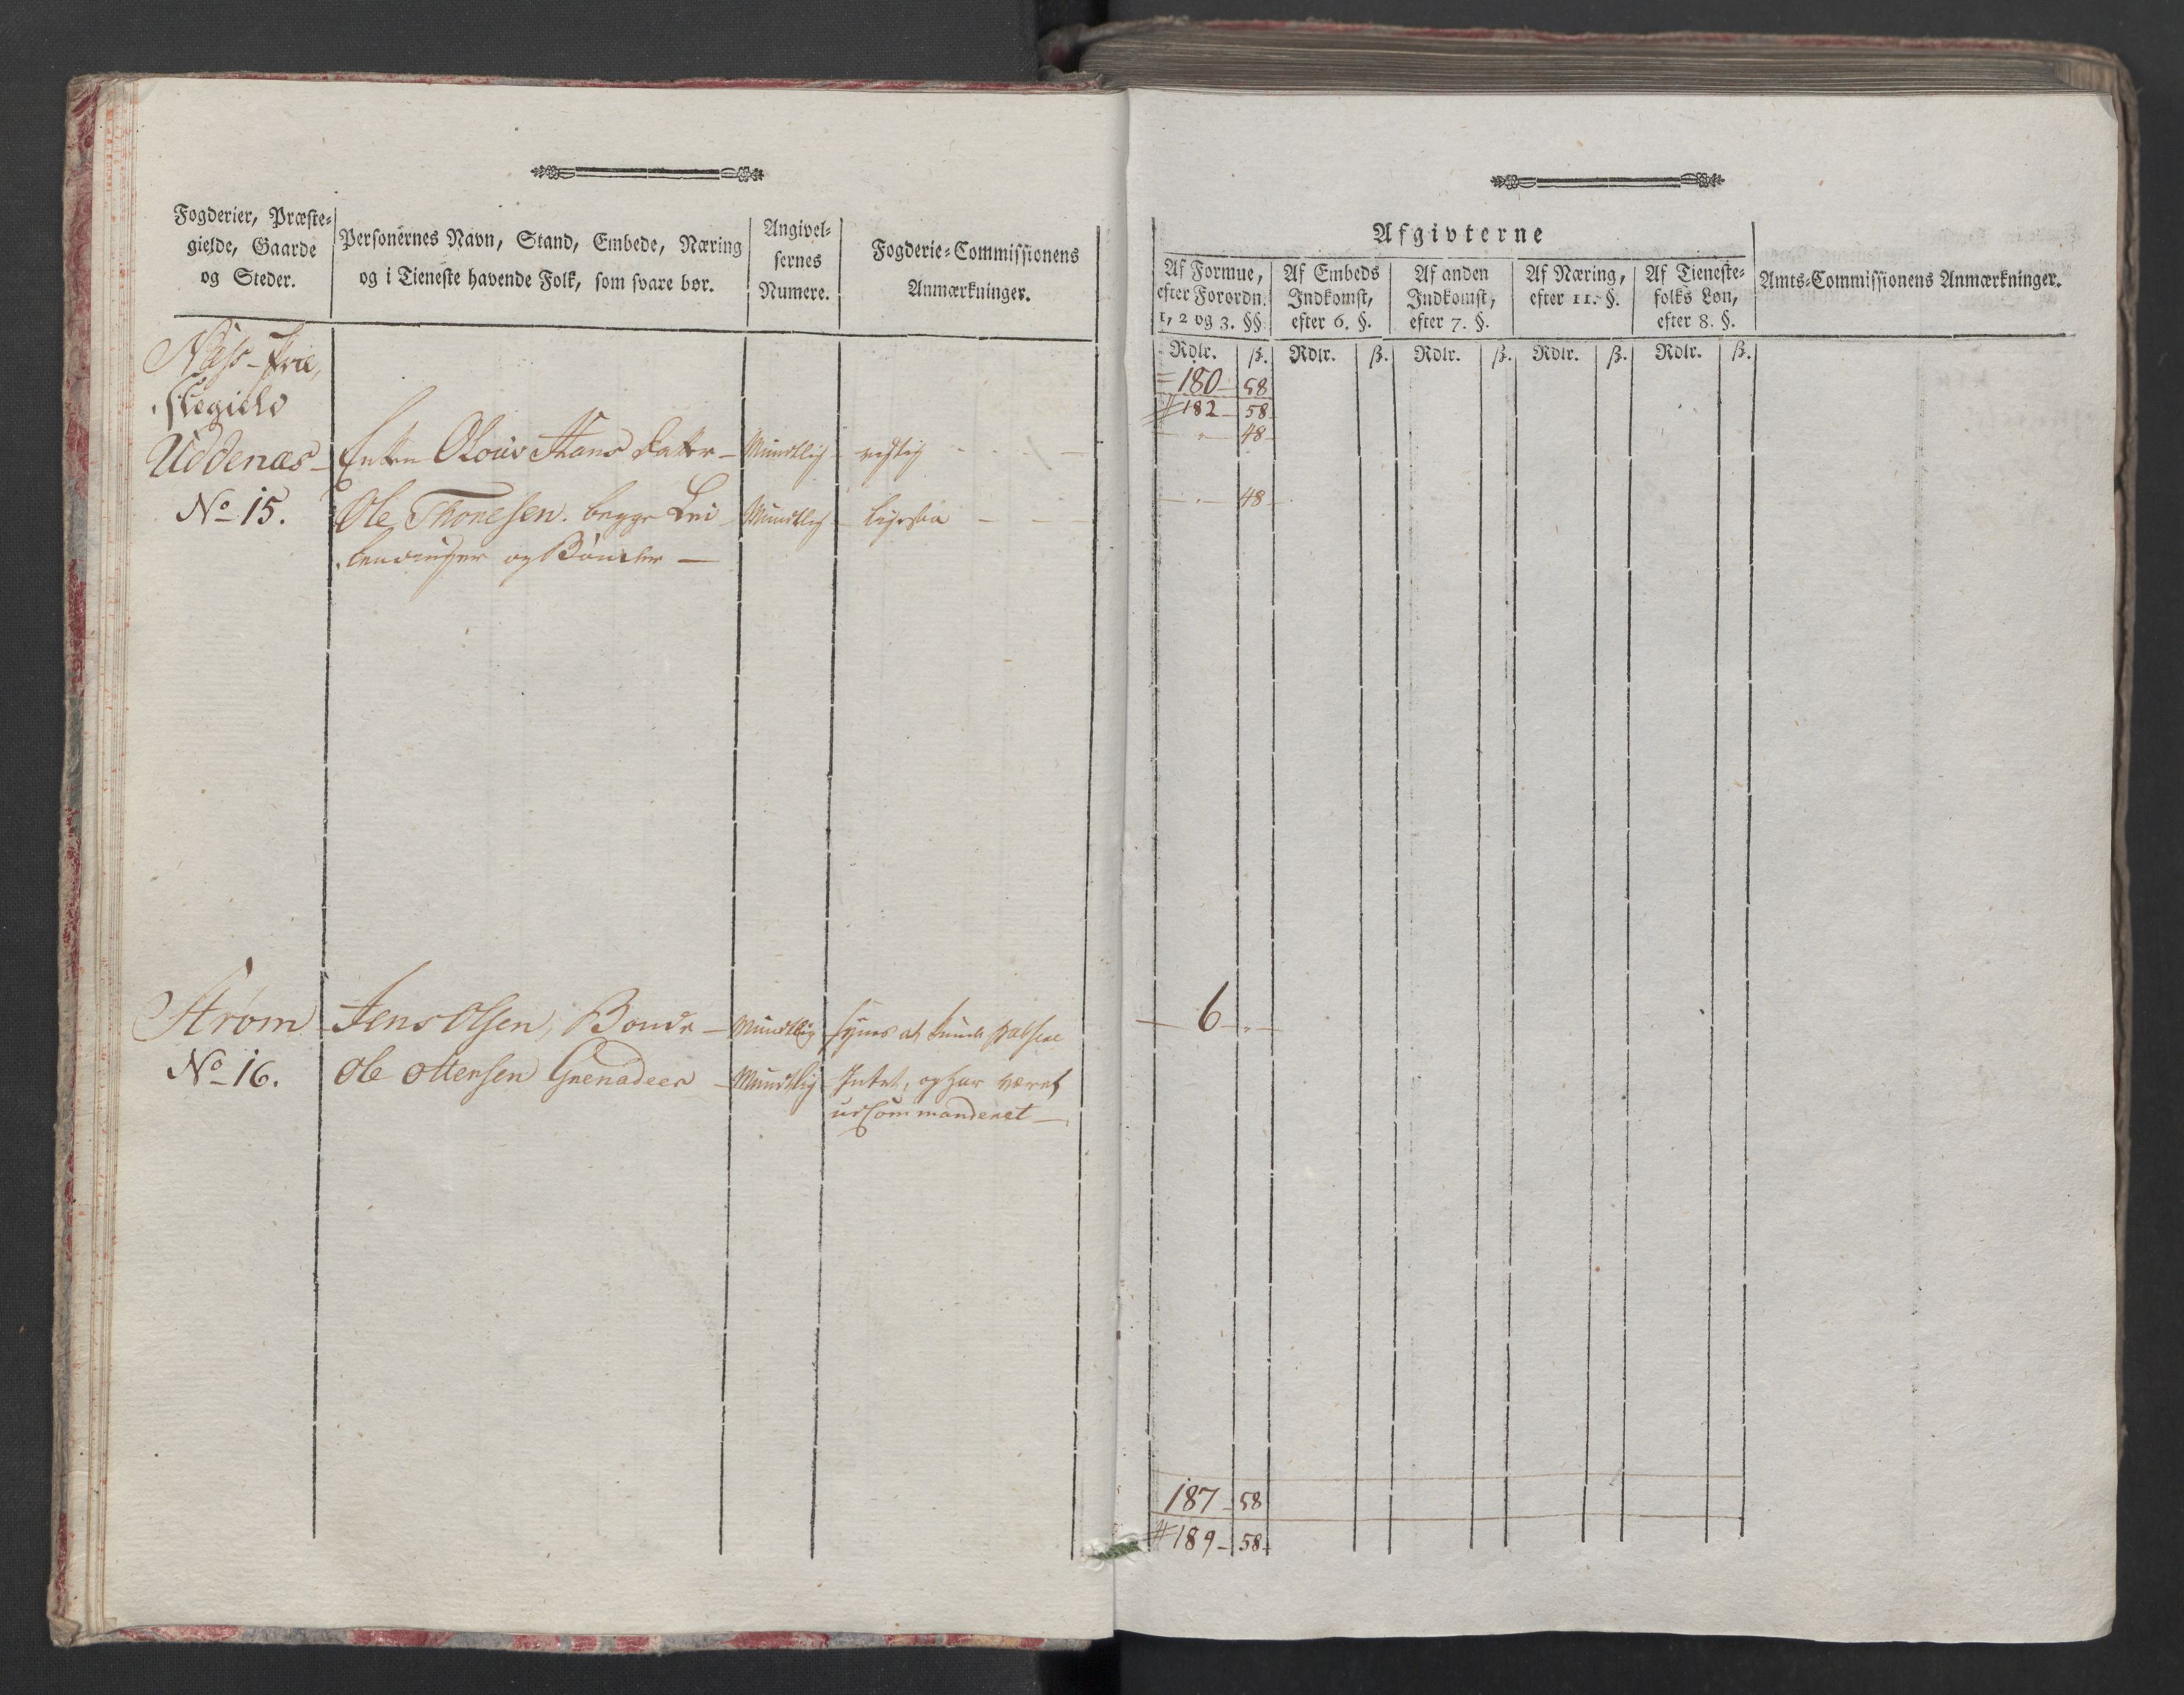 Fogderier, Præste-
gielde, Gaarde
og Steder.
Personernes Navn, Stand, Embede, Næring
og i Tieneste havende Folk, som svare bør.
Angivel-
sernes
Numere.
Fogderie-Commissionens
Anmærkninger.
Næss-Præ-
stegield
Uddenæs
No 15.
Enken Olouv Hans datter - Mundtlig
Ole Thoresen. begge Lei - Mundtlig
lændinger og Bønder -
Strøm
No 16.
Jens Olsen, Bonde - Mundtlig synes at kunde
Ole Ottersen Grenadeer - Mundtlig Intet, og har været
udCommanderet -
Afgivterne
Af Formue,
efter Forordn.
1, 2 og 3. §§
Af Embeds
Indkomst,
efter 6. §.
Af anden
Indkomst,
efter 7. §.
Af Næring,
efter 11. §.
Af Tieneste-
folks Løn,
efter 8. §.
Amts-Commissionens Anmærkninger.
Rdlr. ß. Rdlr. ß. Rdlr. ß. Rdlr. ß. Rdlr. ß.
180 - 58
182 - 58
- " - 48 -
- " - 48 -
- 6 - " -
187 - 58
189 - 58 -